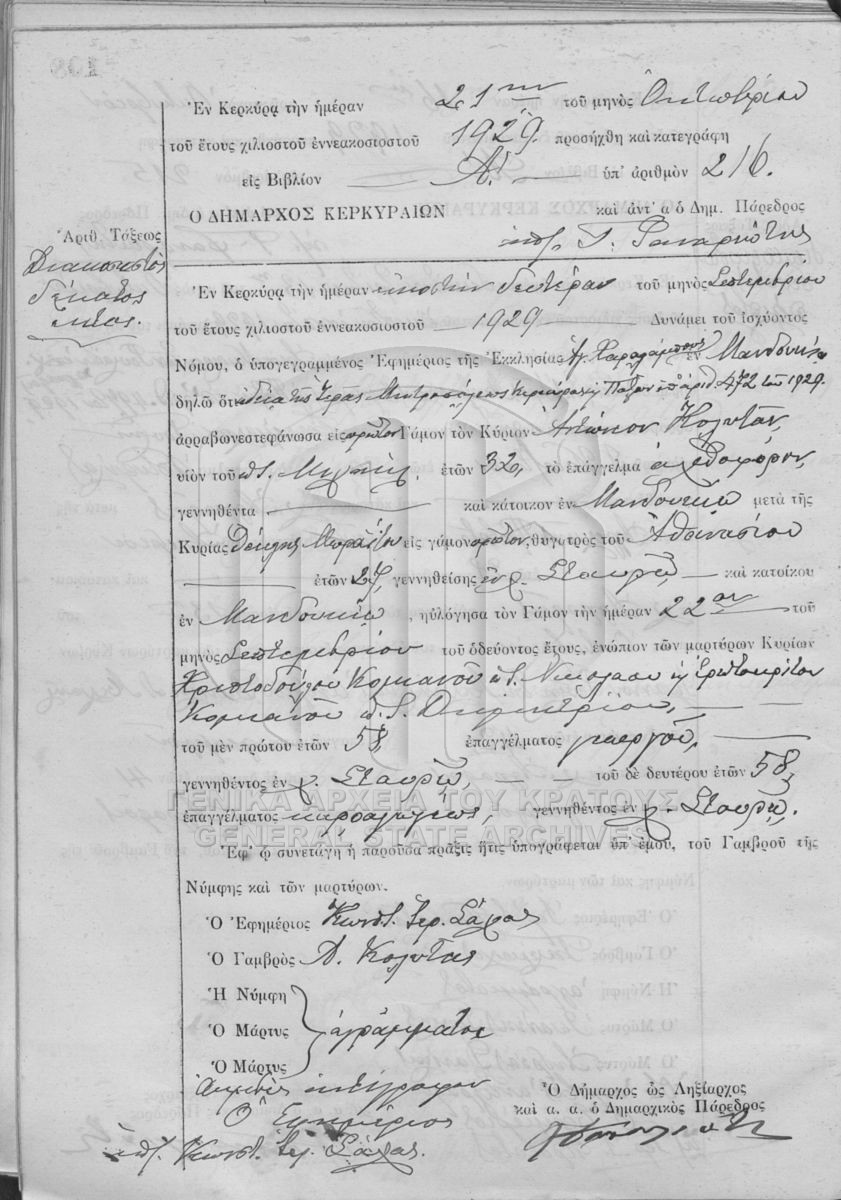 Ἐν Κερκύρᾳ τὴν ἡμέραν 21ην τοῦ μηνὸς Ὀκτωβρίου
τοῦ ἔτους χιλιοστοῦ ἐννεακοσιοστοῦ 1929 προσήχθη καὶ κατεγράφη
εἰς Βιβλίον Α! ὑπ' ἀριθμὸν 216.
Ο ΔΗΜΑΡΧΟΣ ΚΕΡΚΥΡΑΙΩΝ καὶ ἀντ' α ὁ Δημ. Πάρεδρος
Ἀριθ. Τάξεως
Διακοσιοστὸς
δέκατος
ἕκτος.
Ἐν Κερκύρᾳ τὴν ἡμέραν εἰκοστὴν δευτέραν τοῦ μηνὸς Σεπτεμβρίου
τοῦ ἔτους χιλιοστοῦ ἐννεακοσιοστοῦ 1929 Δυνάμει τοῦ ἰσχύοντος
Νόμου, ὁ ὑπογεγραμμένος Ἐφημέριος τῆς Ἐκκλησίας Ἁγ. Χαραλάμπους ἐν Μανδουκίῳ
δηλῶ ὅτι ἀδείᾳ τῆς Ἱερᾶς Μητροπόλεως Κερκύρας ὑπ' ἀριθ. 472 τοῦ 1929.
ἀρραβωνεστεφάνωσα εἰς πρῶτον Γάμον τὸν Κύριον Ἀντώνιον Κολυτᾶν,
υἱὸν τοῦ ἐτῶν 32, τὸ ἐπάγγελμα ἀχθοφόρον,
γεννηθέντα καὶ κάτοικον ἐν Μανδουκίῳ μετὰ τῆς
Κυρίας εἰς γάμον πρῶτον, θυγατρὸς τοῦ Ἀθανασίου
ἐτῶν 27, γεννηθείσης ἐν χ. Σταυρῷ, καὶ κατοίκου
ἐν Μανδουκίῳ, ηὐλόγησα τὸν Γάμον τὴν ἡμέραν 22αν τοῦ
μηνὸς Σεπτεμβρίου τοῦ ὁδεύοντος ἔτους, ἐνώπιον τῶν μαρτύρων Κυρίων
Χριστοδούλου Κολκανοῦ Νικολάου ἢ Ἐρωτοκρίτου
Δημητρίου,
τοῦ μὲν πρώτου ἐτῶν 58, ἐπαγγέλματος γεωργοῦ,
γεννηθέντος ἐν χ. Σταυρῷ, τοῦ δὲ δευτέρου ἐτῶν 58,
ἐπαγγέλματος καρραγωγέως, γεννηθέντος ἐν χ. Σταυρῷ.
ΓΕΝΙΚΑ ΑΡΧΕΙΑ ΤΟΥ ΚΡΑΤΟΥΣ
GENERAL STATE ARCHIVES
Ἐφ' ᾧ συνετάγη ἡ παροῦσα πρᾶξις ἥτις ὑπογράφεται ὑπ' ἐμοῦ, τοῦ Γαμβροῦ τῆς
Νύμφης καὶ τῶν μαρτύρων.
Ὁ Ἐφημέριος Κωνστ. Ἱερ. Σάχας
Ὁ Γαμβρὸς Α. Κολυτᾶς
Ἡ Νύμφη
Ὁ Μάρτυς ἀγράμματοι
Ὁ Μάρτυς
Ἀκριβὲς ἀντίγραφον
Ὁ Ἐφημέριος
Κωνστ. Ἱερ. Σάχας.
Ὁ Δήμαρχος ὡς Ληξίαρχος
καὶ α. α. ὁ Δημαρχικὸς Πάρεδρος